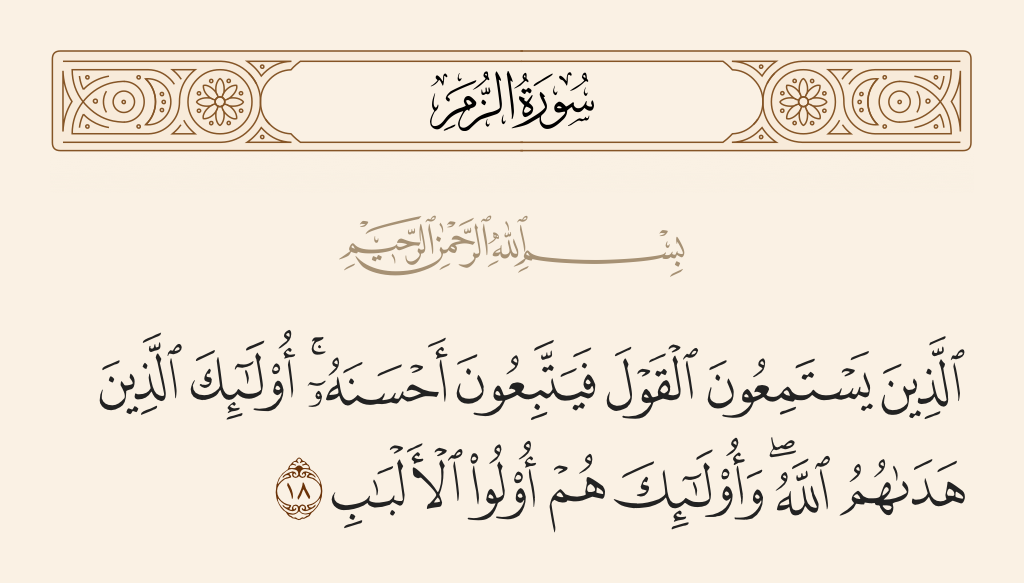 سُورَةُ الزُّمَرِ
بِسْمِ ٱللَّهِ ٱلرَّحْمَٰنِ ٱلرَّحِيمِ
ٱلَّذِينَ يَسْتَمِعُونَ ٱلْقَوْلَ فَيَتَّبِعُونَ أَحْسَنَهُۥٓ ۚ أُو۟لَٰٓئِكَ ٱلَّذِينَ
هَدَىٰهُمُ ٱللَّهُ ۖ وَأُو۟لَٰٓئِكَ هُمْ أُو۟لُوا۟ ٱلْأَلْبَٰبِ ١٨